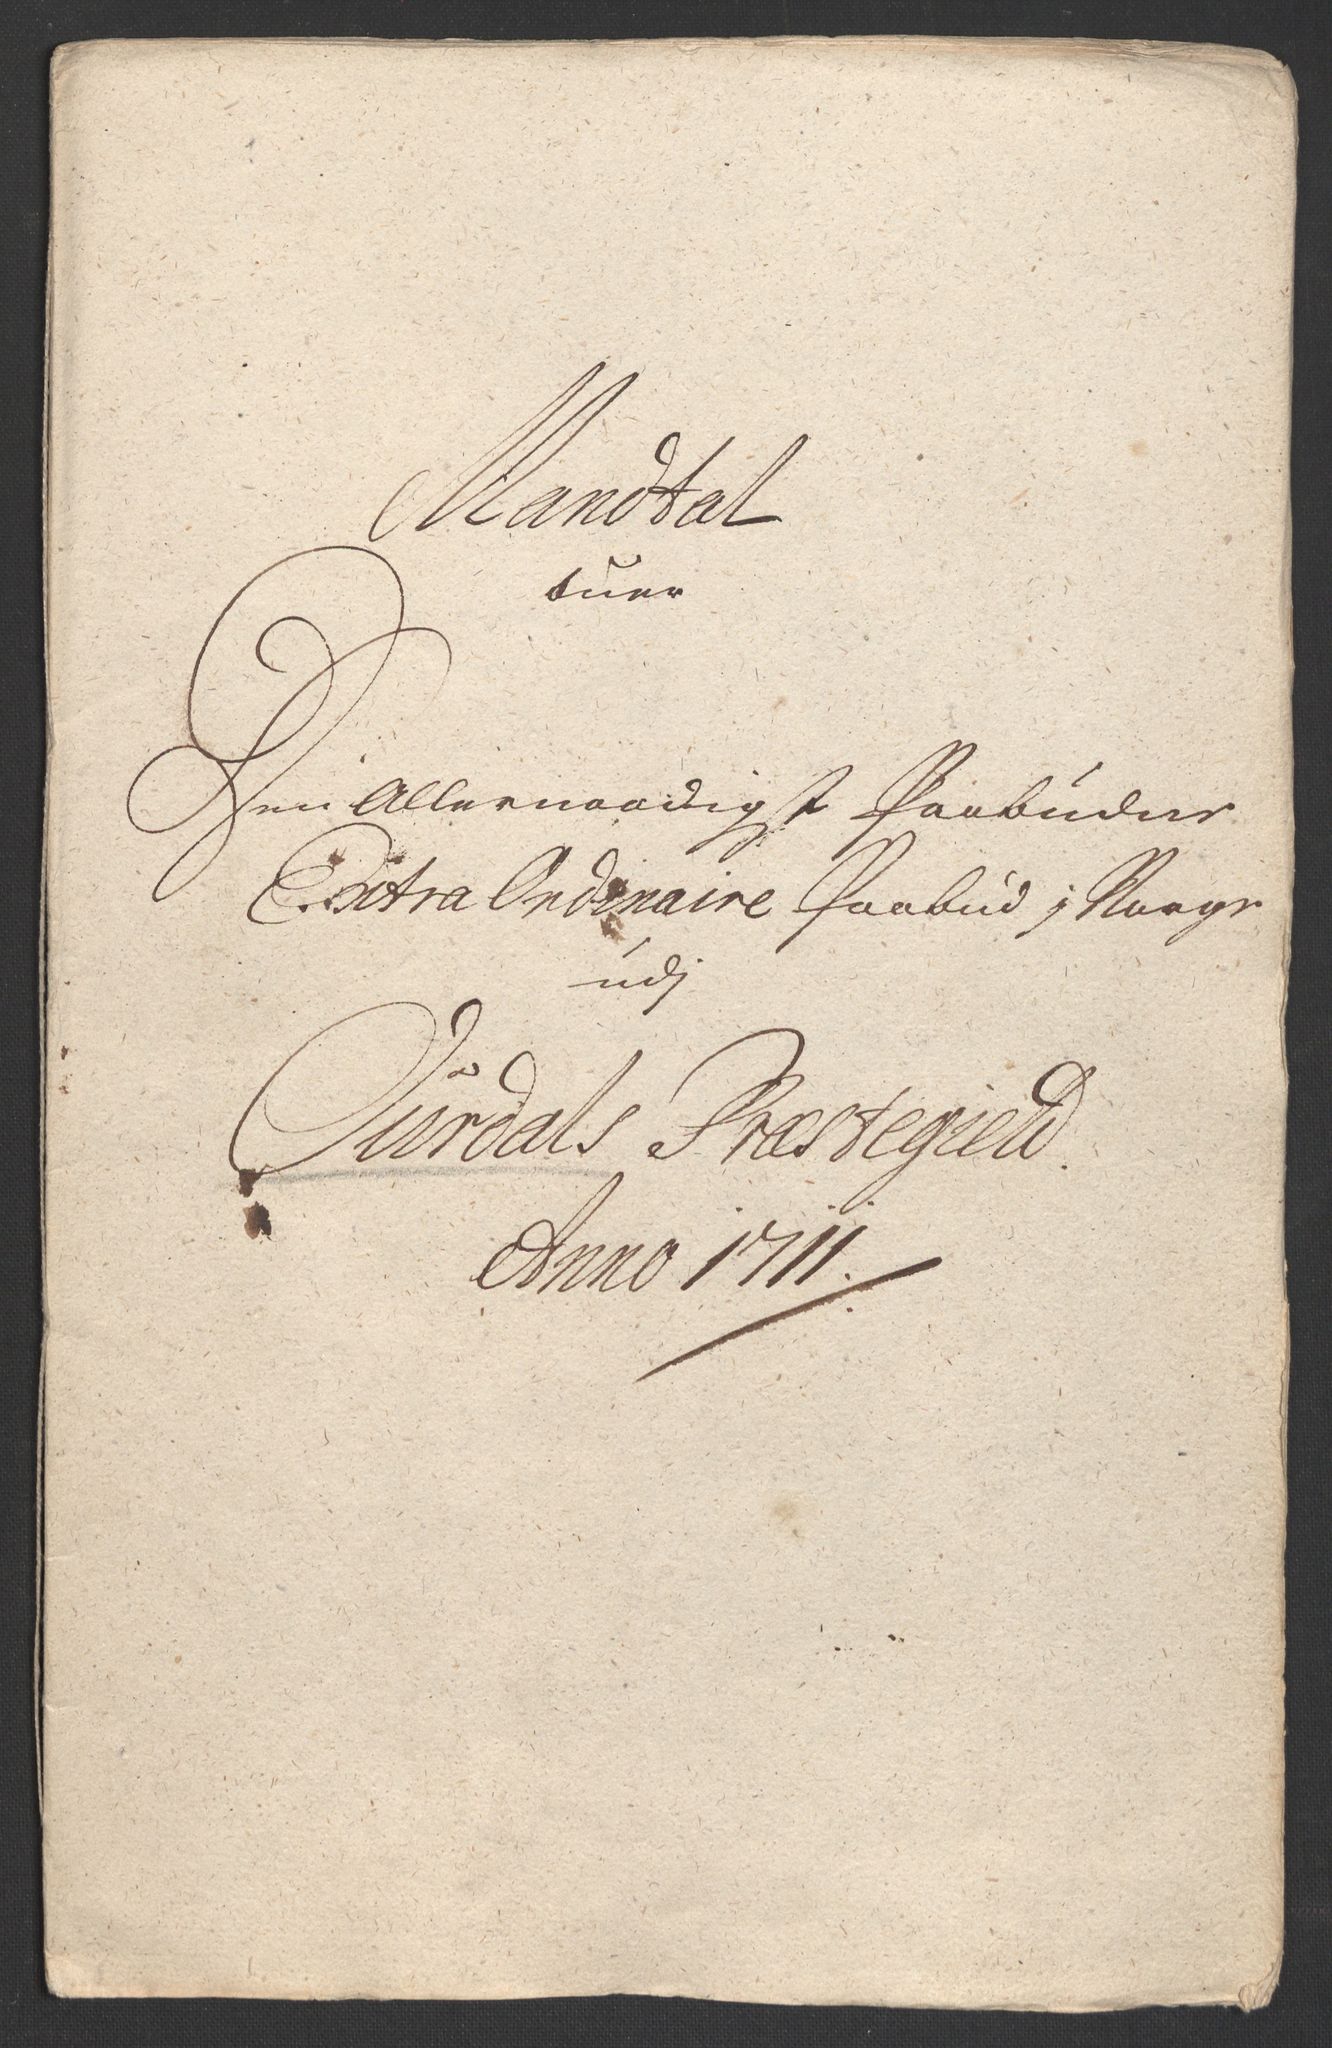 Mandtal
Over
Den Allernaadigst Paabudne
Extra Ordinaire Paabud j Norge
udj
Ourdals Præstegield.
Anno 1711.